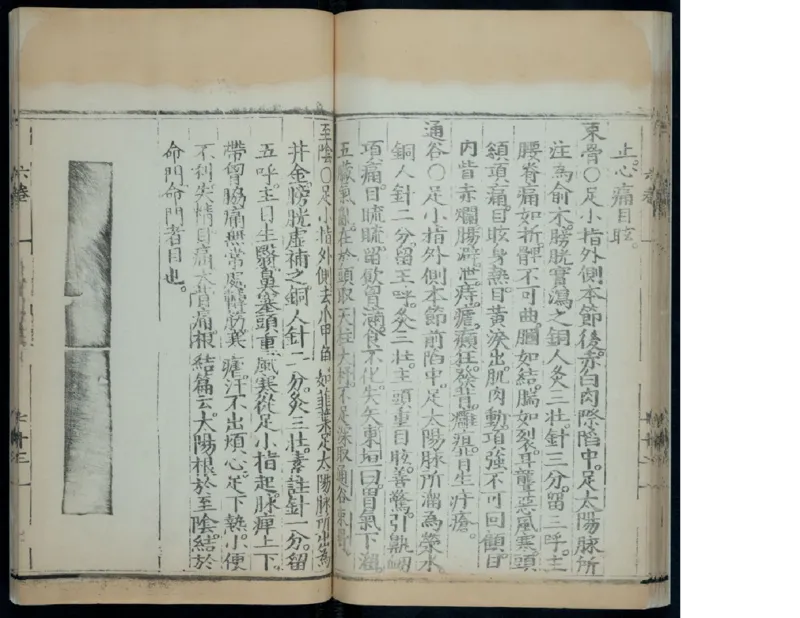 止。心痛目眩。
束骨○足小指外側本節後。赤白肉際陷中。足太陽脉所
注為俞木。膀胱實瀉之。銅人灸三壯。針三分。留三呼。主
腰脊痛如折。髀不可曲。膕如結。腨如裂。耳聾。惡風寒。頭
顖項痛。目眩身熱。目黃淚出。肌肉動。項強不可回顧。目
內眥赤爛。腸澼泄。痔。瘧。癲狂。發背。癰疽。背生疔瘡。
通谷○足小指外側本節前陷中。足太陽脉所溜為滎水。
銅人針二分。留五呼。灸三壯。主頭重目眩。善驚。引鼽衄。
項痛。目䀮䀮。留飲胷滿。食不化。失矢。東垣曰。胃氣下溜。
五藏氣亂。在於頭。取天柱大杼。不足。深取通谷束骨。
至陰○足小指外側。去爪甲角如韮葉。足太陽脉所出為
井金。膀胱虛補之。銅人針二分。灸三壯。素註針一分。留
五呼。主目生翳。鼻塞頭重。風寒從足小指起。脉痺上下。
帶胷脇痛無常處。轉筋。寒瘧。汗不出。煩心。足下熱。小便
不利。失精。目痛。大眥痛。根結篇云。太陽根於至陰。結於
命門。命門者目也。
六卷
六卷